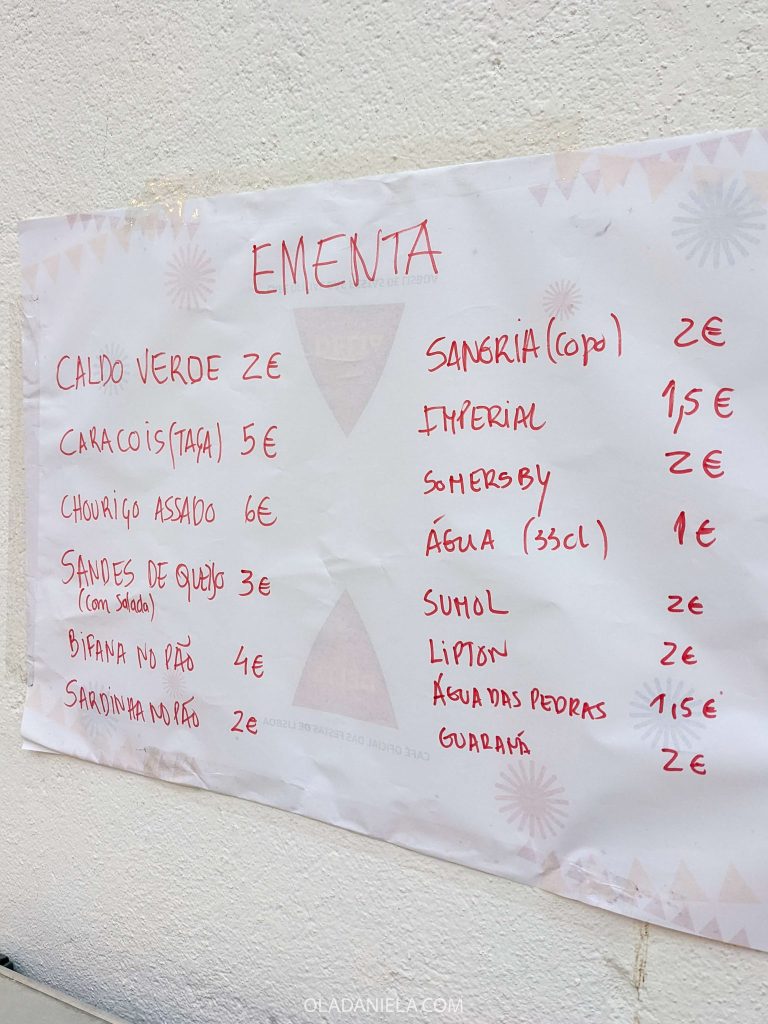 EMENTA
CALDO VERDE 2€
CARACOIS (TAÇA) 5€
CHOURIÇO ASSADO 6€
SANDES DE QUEIJO 3€
(com Salada)
BIFANA NO PÃO 4€
SARDINHA NO PÃO 2€
SANGRIA (COPO) 2€
IMPERIAL 1,5€
SOMERSBY 2€
ÁGUA (33cl) 1€
SUMOL 2€
LIPTON 2€
ÁGUA DAS PEDRAS 1,5€
GUARANÁ 2€
CAFÉ OFICIAL DAS FESTAS DE LISBOA
OLADANIELA.COM